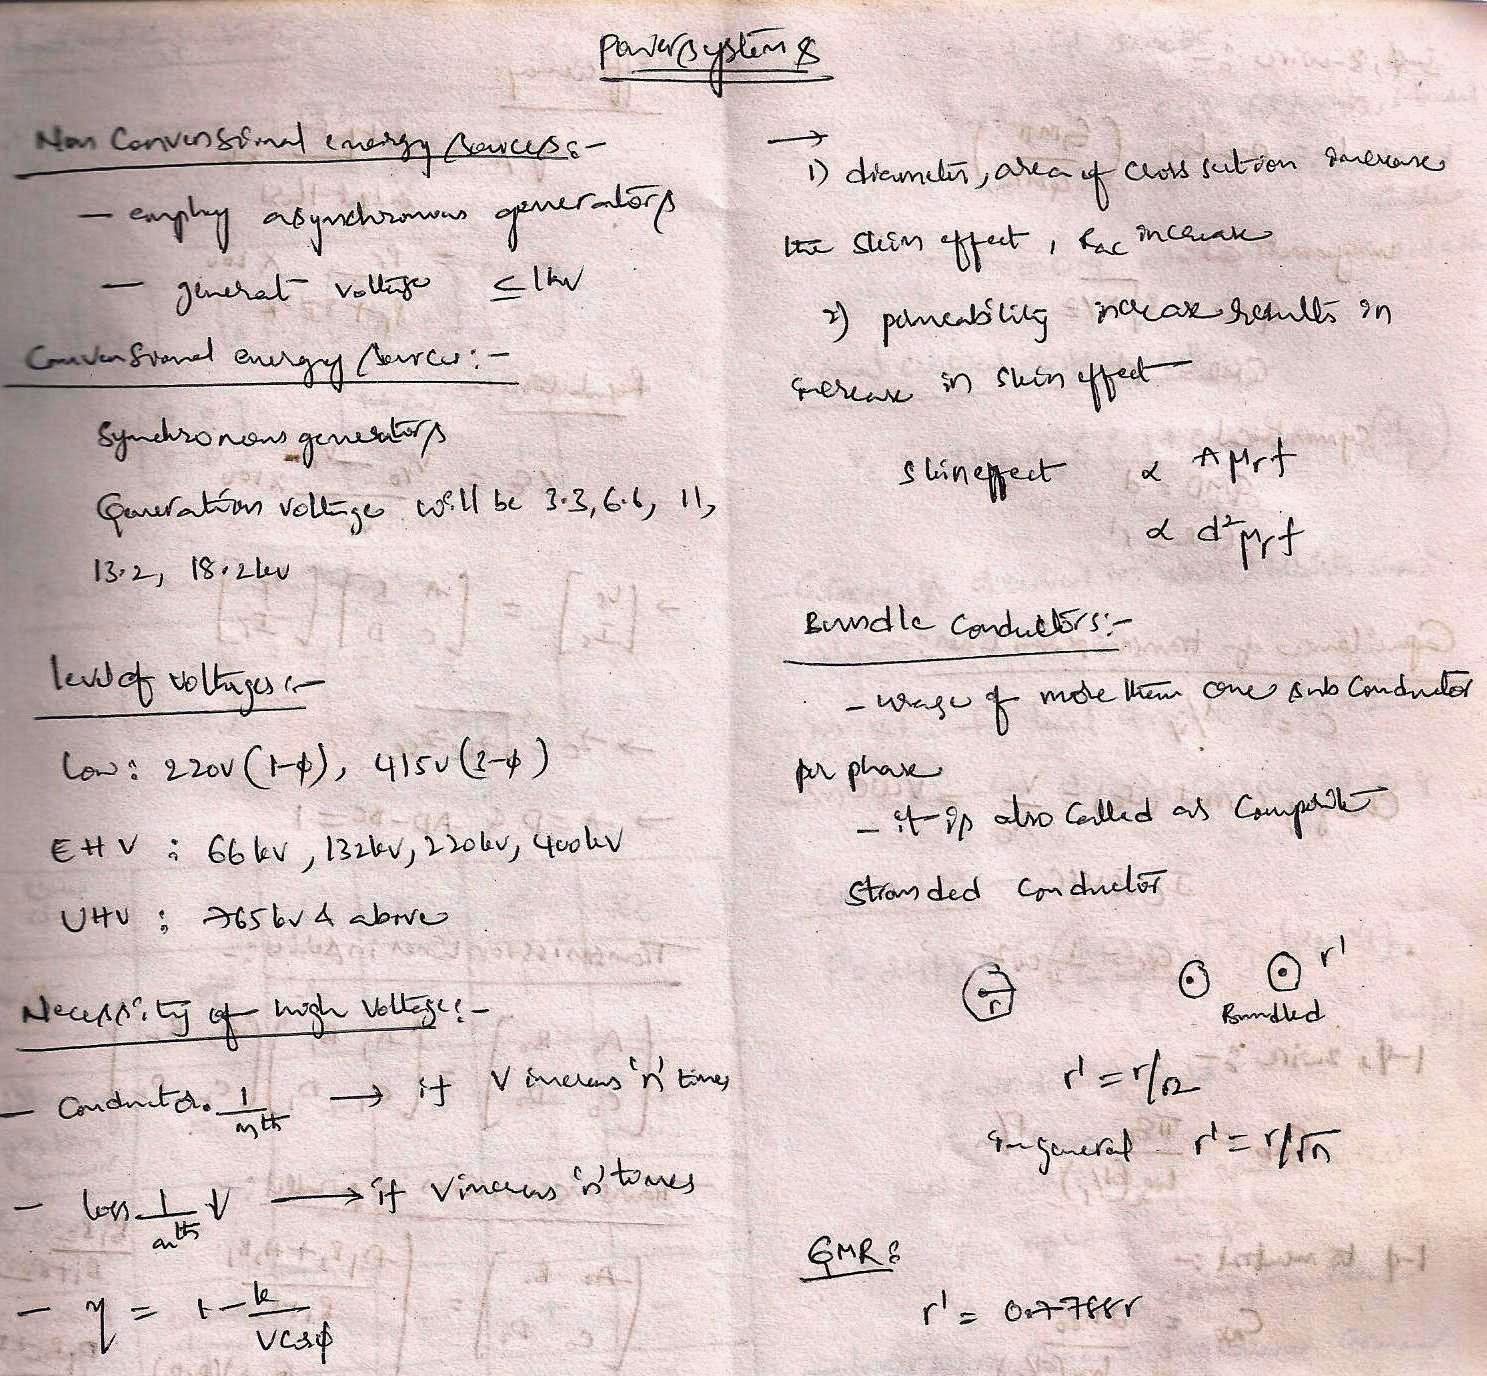 Power systems
Non Convensional energy sources:-
- employ asynchronous generators
- generat voltage ≤ 1kv
Convensional energy source:-
Synchronous generators
Generation voltage will be 3.3, 6.6, 11,
13.2, 18.2kv
level of voltages:-
Low: 220v (1-ϕ), 415v (3-ϕ)
EHV : 66kv, 132kv, 220kv, 400kv
UHV : 765kv & above
Necessity of high Voltage:-
- Conductor. 1/nth → if V increas 'n' times
- loss 1/nth ↓ → if V increas 'n' times
- η = 1 - k/VCosϕ
→
1) diameter, area of cross section increase
the skin effect, Rac increase
2) permeability increase results in
increase in skin effect
skin effect ∝ Aμrf
∝ d²μrf
Bundle Conductors:-
- usage of more than one sub Conductor
per phase
- it is also Called as Composite
Stranded Conductor
r r'
Bundled
r' = r/√2
In general r' = r/√n
GMR:
r' = 0.7788r